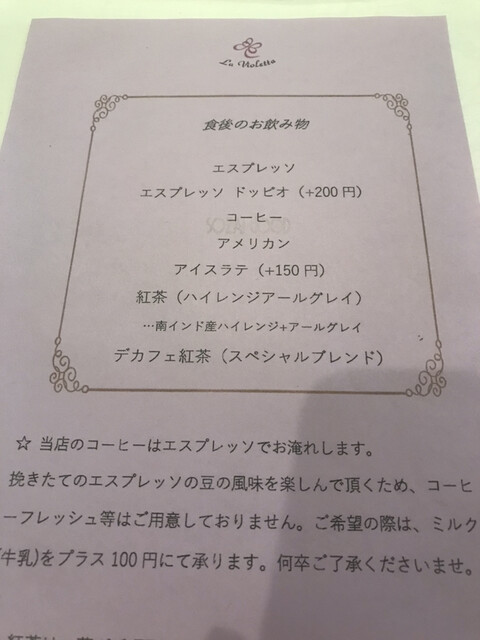 La Violetta
食後のお飲み物
エスプレッソ
エスプレッソ ドッピオ（+200 円）
コーヒー
アメリカン
アイスラテ（+150 円）
紅茶（ハイレンジアールグレイ）
…南インド産ハイレンジ+アールグレイ
デカフェ紅茶（スペシャルブレンド）
☆ 当店のコーヒーはエスプレッソでお淹れします。
挽きたてのエスプレッソの豆の風味を楽しんで頂くため、コーヒ
ーフレッシュ等はご用意しておりません。ご希望の際は、ミルク
(牛乳)をプラス 100 円にて承ります。何卒ご了承くださいませ。